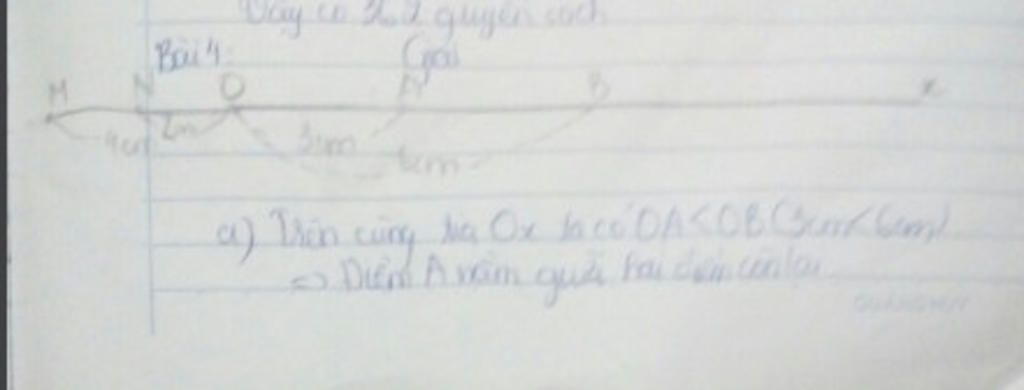 Vậy có 312 quyển sách
Bài 4: Giải
M N O A B x
4cm 2cm 3cm 6cm
a) Trên cùng tia Ox ta có OA < OB (3cm < 6cm)
=> Điểm A nằm giữa hai điểm còn lại